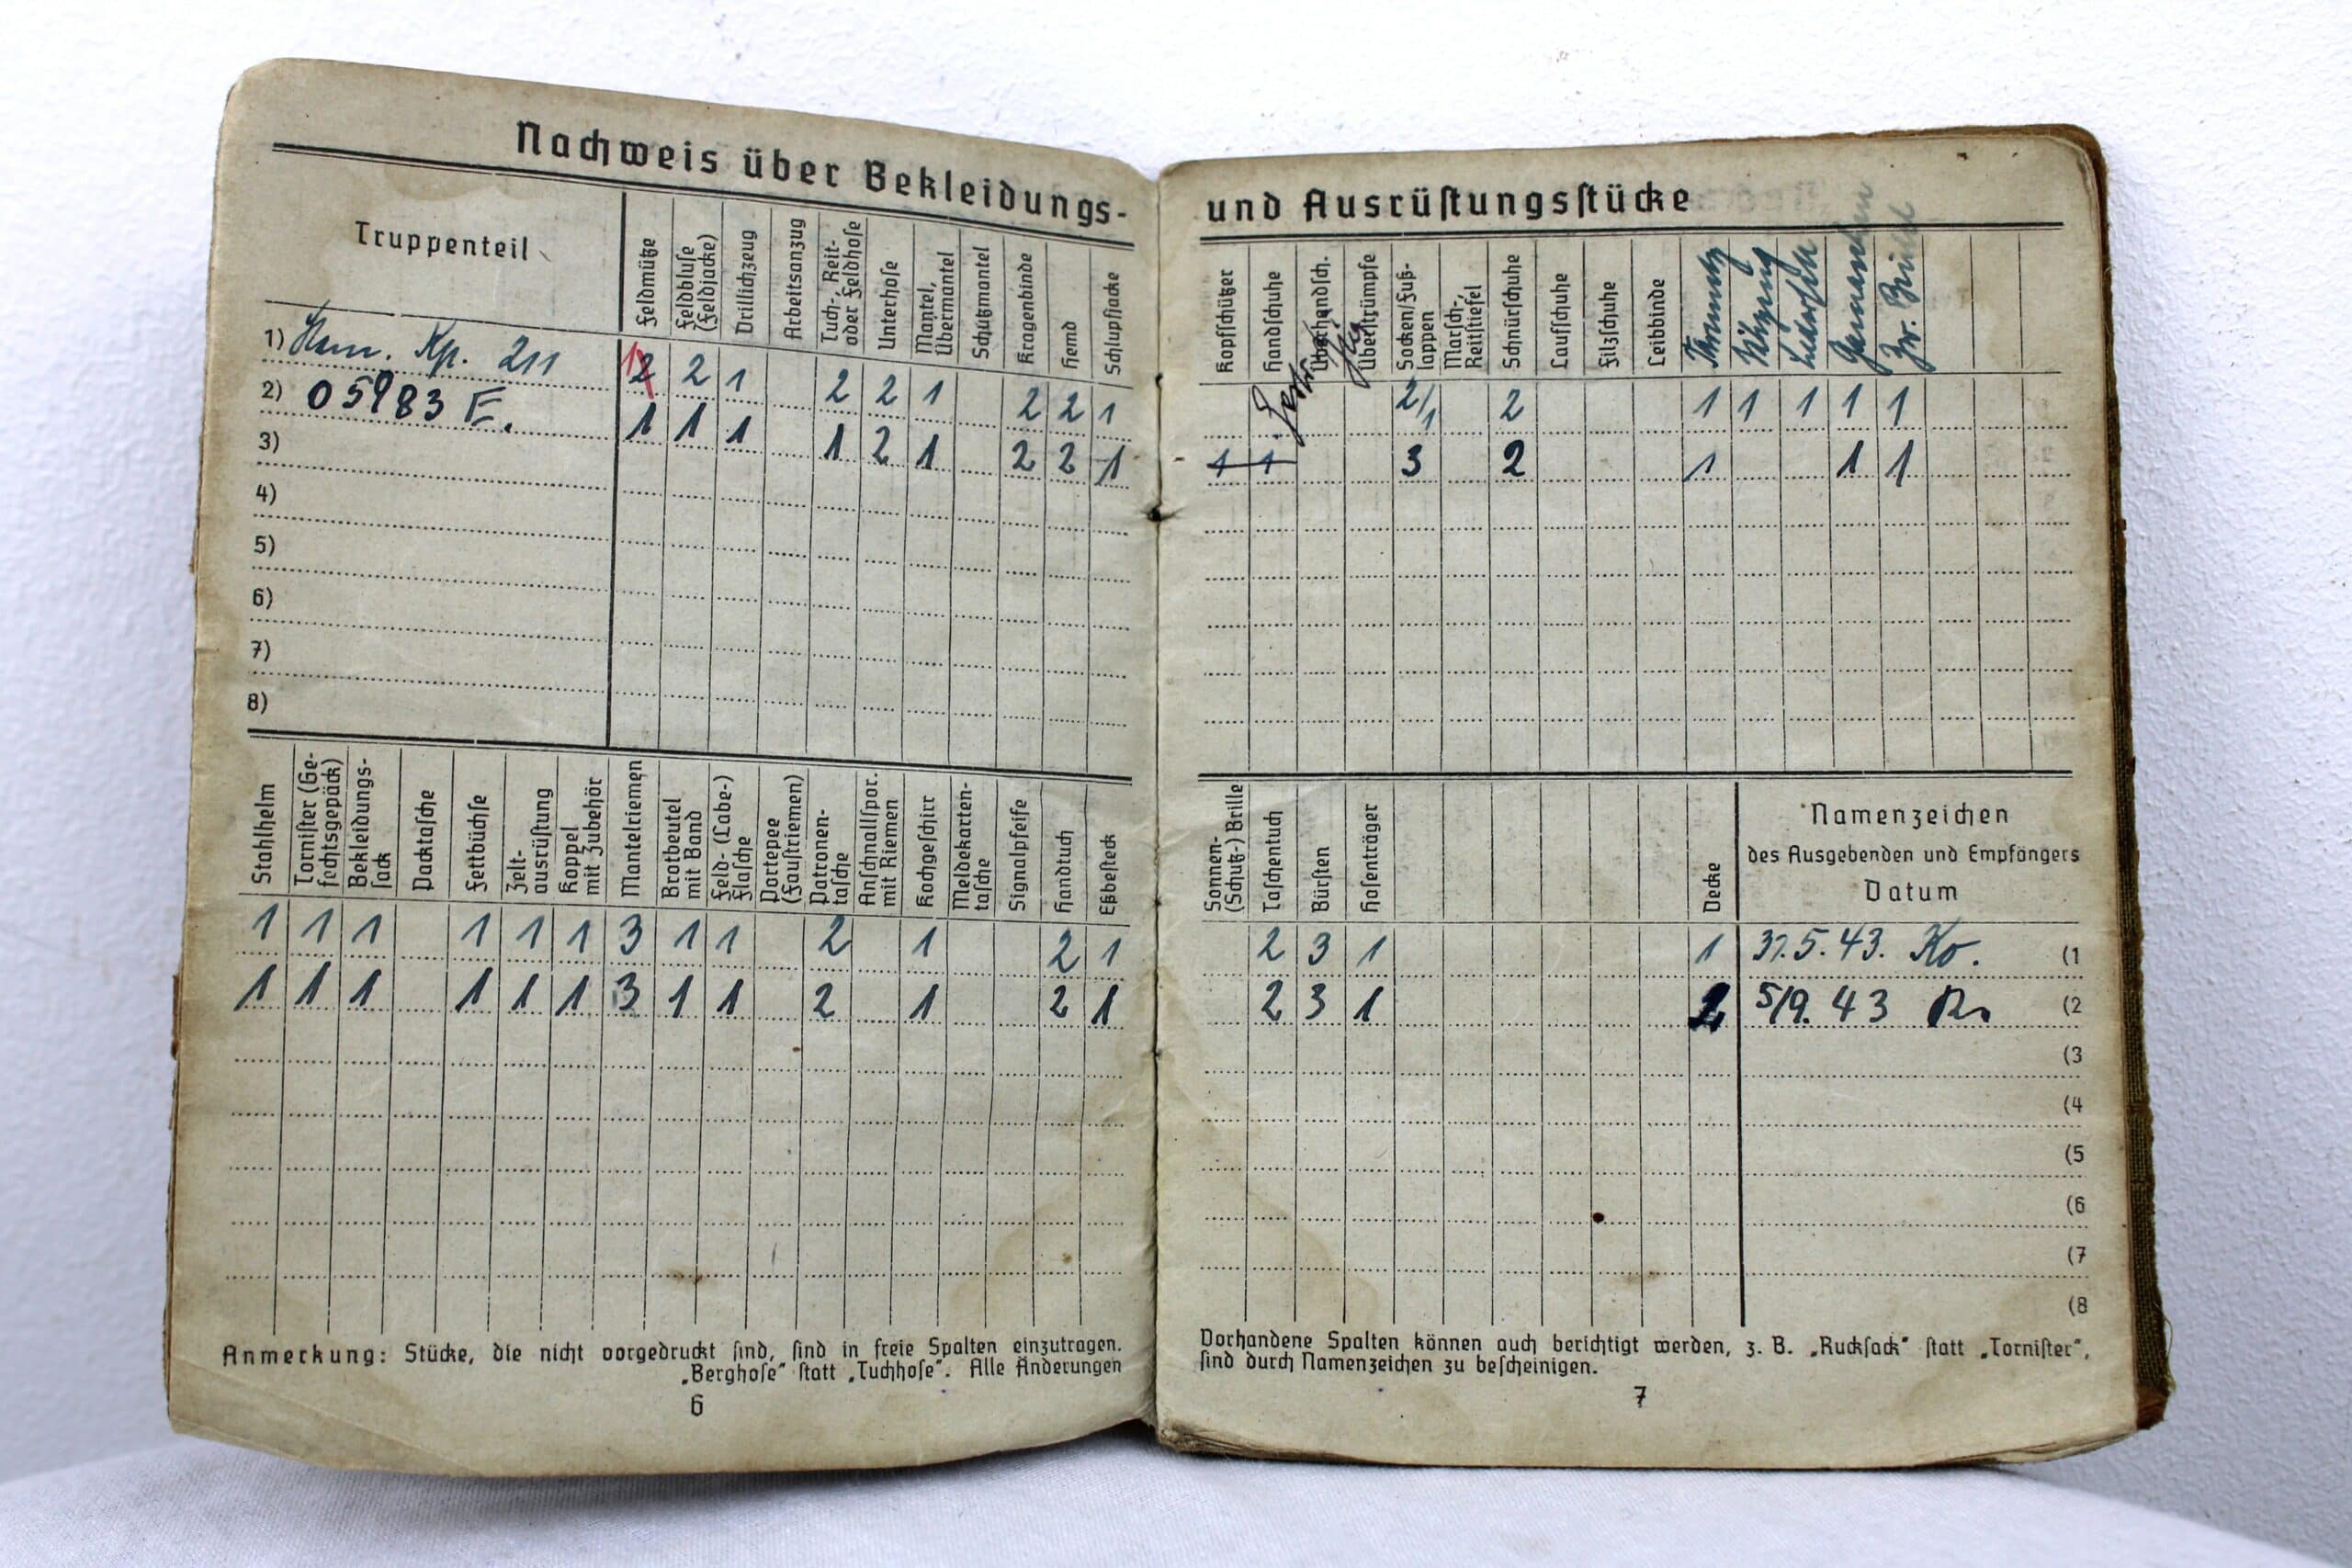 Nachweis über Bekleidungs-
Truppenteil
Feldmütze
Feldbluse
(Feldjacke)
Drillichzeug
Arbeitsanzug
Tuch-, Reit-
oder Feldhose
Unterhose
Mantel,
Übermantel
Schutzmantel
Kragenbinde
Hemd
Schlupfjacke
1) Kp. 211 2 2 1 2 2 1 2 2 1
2) 05983 E. 1 1 1 1 2 1 2 2 1
3)
4)
5)
6)
7)
8)
Stahlhelm
Tornister (Ge-
fechtsgepäck)
Bekleidungs-
sack
Packtasche
Fettbüchse
Zelt-
ausrüstung
Koppel
mit Zubehör
Mantelriemen
Brotbeutel
mit Band
Feld- (Labe-)
Flasche
Portepee
(Faustriemen)
Patronen-
tasche
Anschnallspor.
mit Riemen
Kochgeschirr
Meldekarten-
tasche
Signalpfeife
Handtuch
Eßbesteck
1 1 1 1 1 1 3 1 1 2 1 2 1
1 1 1 1 1 1 3 1 1 2 1 2 1
Anmerkung: Stücke, die nicht vorgedruckt sind, sind in freie Spalten einzutragen.
„Berghose“ statt „Tuchhose“. Alle Änderungen
6
und Ausrüstungsstücke
Kopfschützer
Handschuhe
Überhandsch.
Überstrümpfe
Socken/Fuß-
lappen
Marsch-,
Reitstiefel
Schnürschuhe
Laufschuhe
Filzschuhe
Leibbinde
Gamaschen
2/1 2 1 1 1 1 1
1 1 3 2 1 1 1
Sonnen-
(Schutz-) Brille
Taschentuch
Bürsten
Hosenträger
Decke
Namenzeichen
des Ausgebenden und Empfängers
Datum
2 3 1 1 31.5.43. Ko. (1
2 3 1 2 5/9. 43 (2
(3
(4
(5
(6
(7
(8
Vorhandene Spalten können auch berichtigt werden, z. B. „Rucksack“ statt „Tornister“,
sind durch Namenzeichen zu bescheinigen.
7